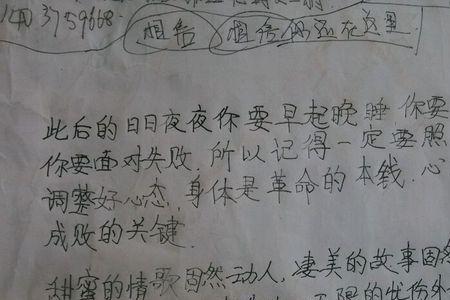 3759668.
相信 相信你还在这里
此后的日日夜夜你要早起晚睡,你要
你要面对失败.所以记得一定要照
调整好心态.身体是革命的本钱.心
成败的关键.
甜蜜的情歌固然动人,凄美的故事固然
无限的忧伤